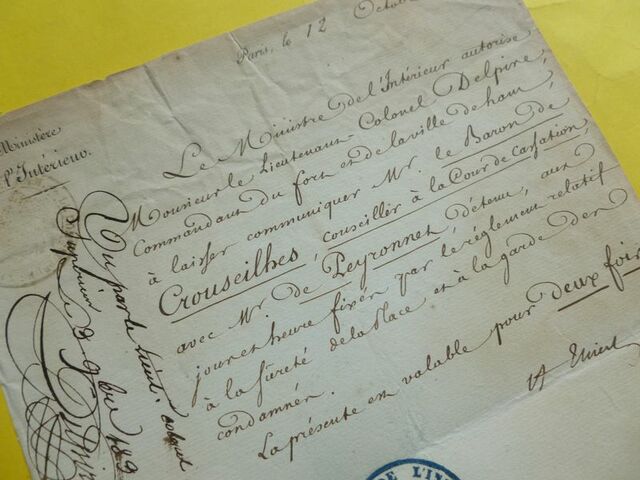 Paris, le 12 Octob
Ministère
l'Intérieur.
Le Ministre de l'Intérieur autorise
Monsieur le Lieutenant-Colonel Delpire
Commandant du fort et de la ville de ham,
à laisser communiquer Mr. le Baron de
Crouseilhes, conseiller à la Cour de Cassation,
avec Mr. de Peyronnet, détenu, aux
jour et heure fixés par le réglement relatif
à la sûreté de la Place et à la garde des
condamnés.
La présente est valable pour deux fois
A Thiers
Vu par le lieut. colonel
DE L'IN